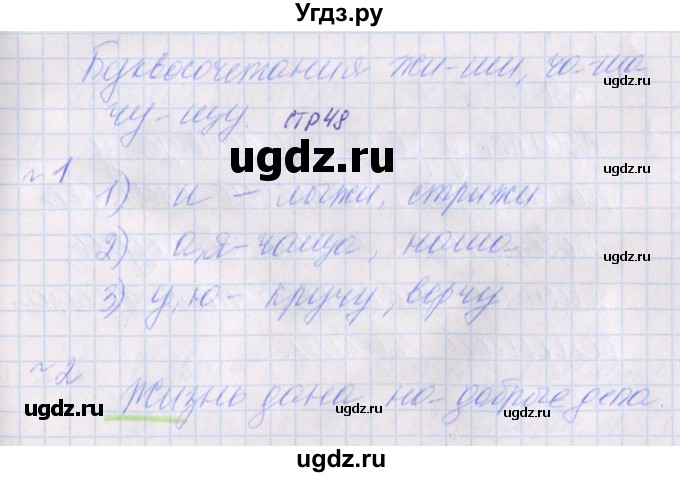 Угдз.ру
Буквосочетания жи-ши, ча-ща
чу-щу. стр 48
ugdz.ru
№1
1) и - лыжи, стрижи
ugdz.ru
2) а,я - чаща, наша
ugdz.ru
3) у, ю - кручу, верчу
№2
Жизнь дана на добрые дела.
ugdz.ru
ugdz.ru
ugdz.ru
ugdz.ru